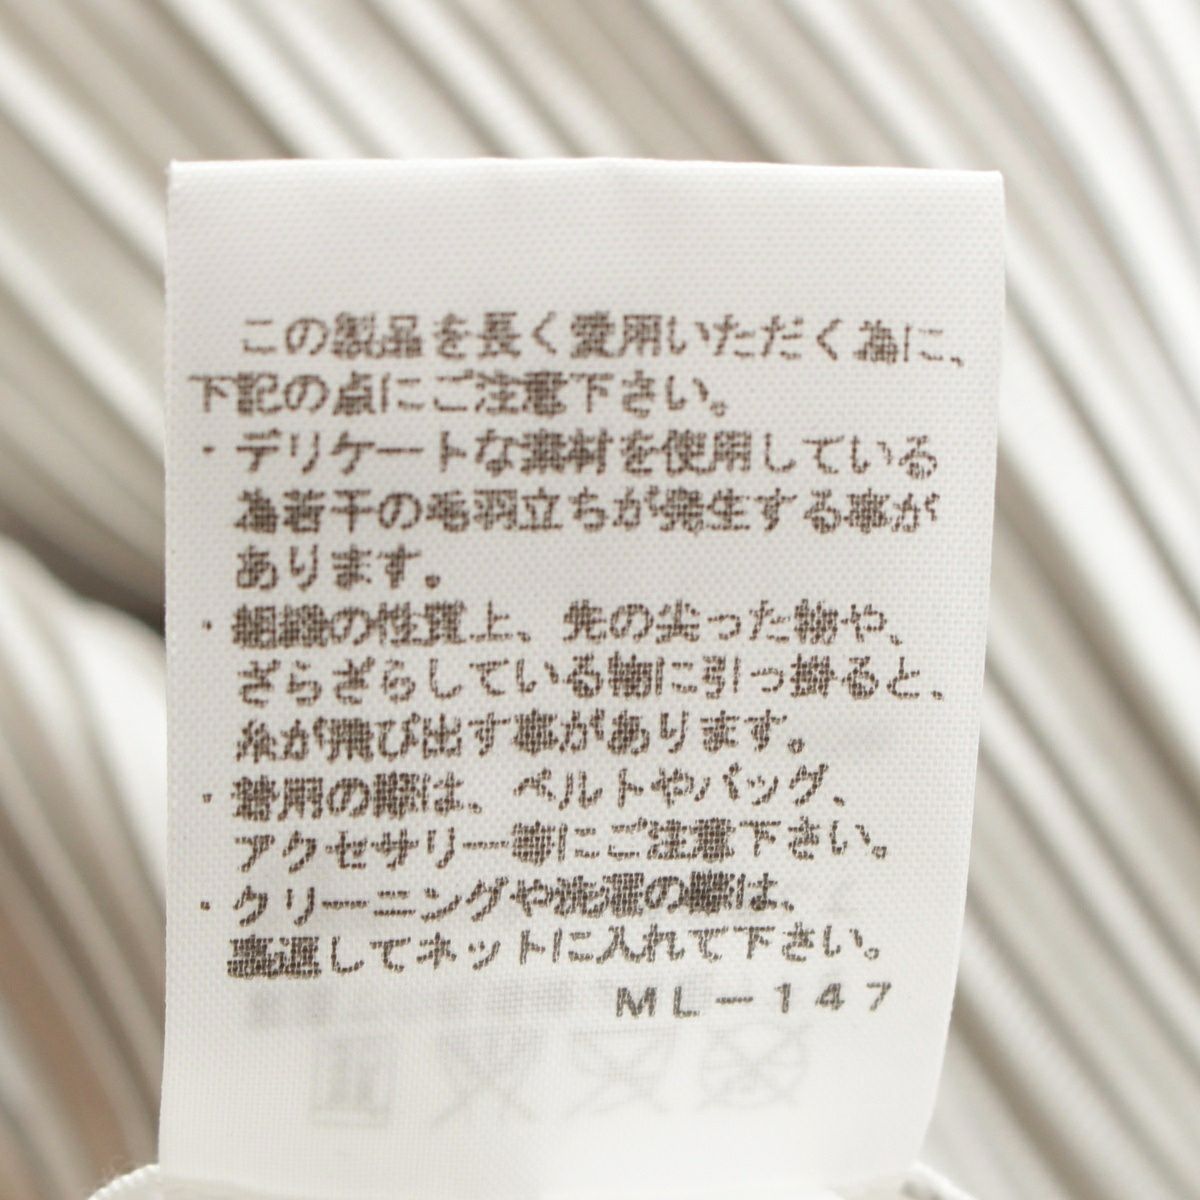 この製品を長く愛用いただく為に、
下記の点にご注意下さい。
・デリケートな素材を使用している
為若干の毛羽立ちが発生する事が
あります。
・組織の性質上、先の尖った物や、
ざらざらしている物に引っ掛ると、
糸が飛び出す事があります。
・着用の際は、ベルトやバッグ、
アクセサリー等にご注意下さい。
・クリーニングや洗濯の際は、
裏返してネットに入れて下さい。
ML－147